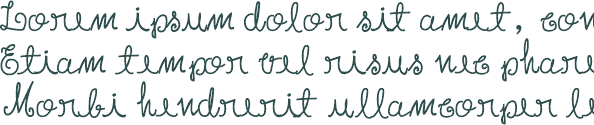 Lorem ipsum dolor sit amet, con
Etiam tempor vel risus nec phare
Morbi hendrerit ullamcorper le